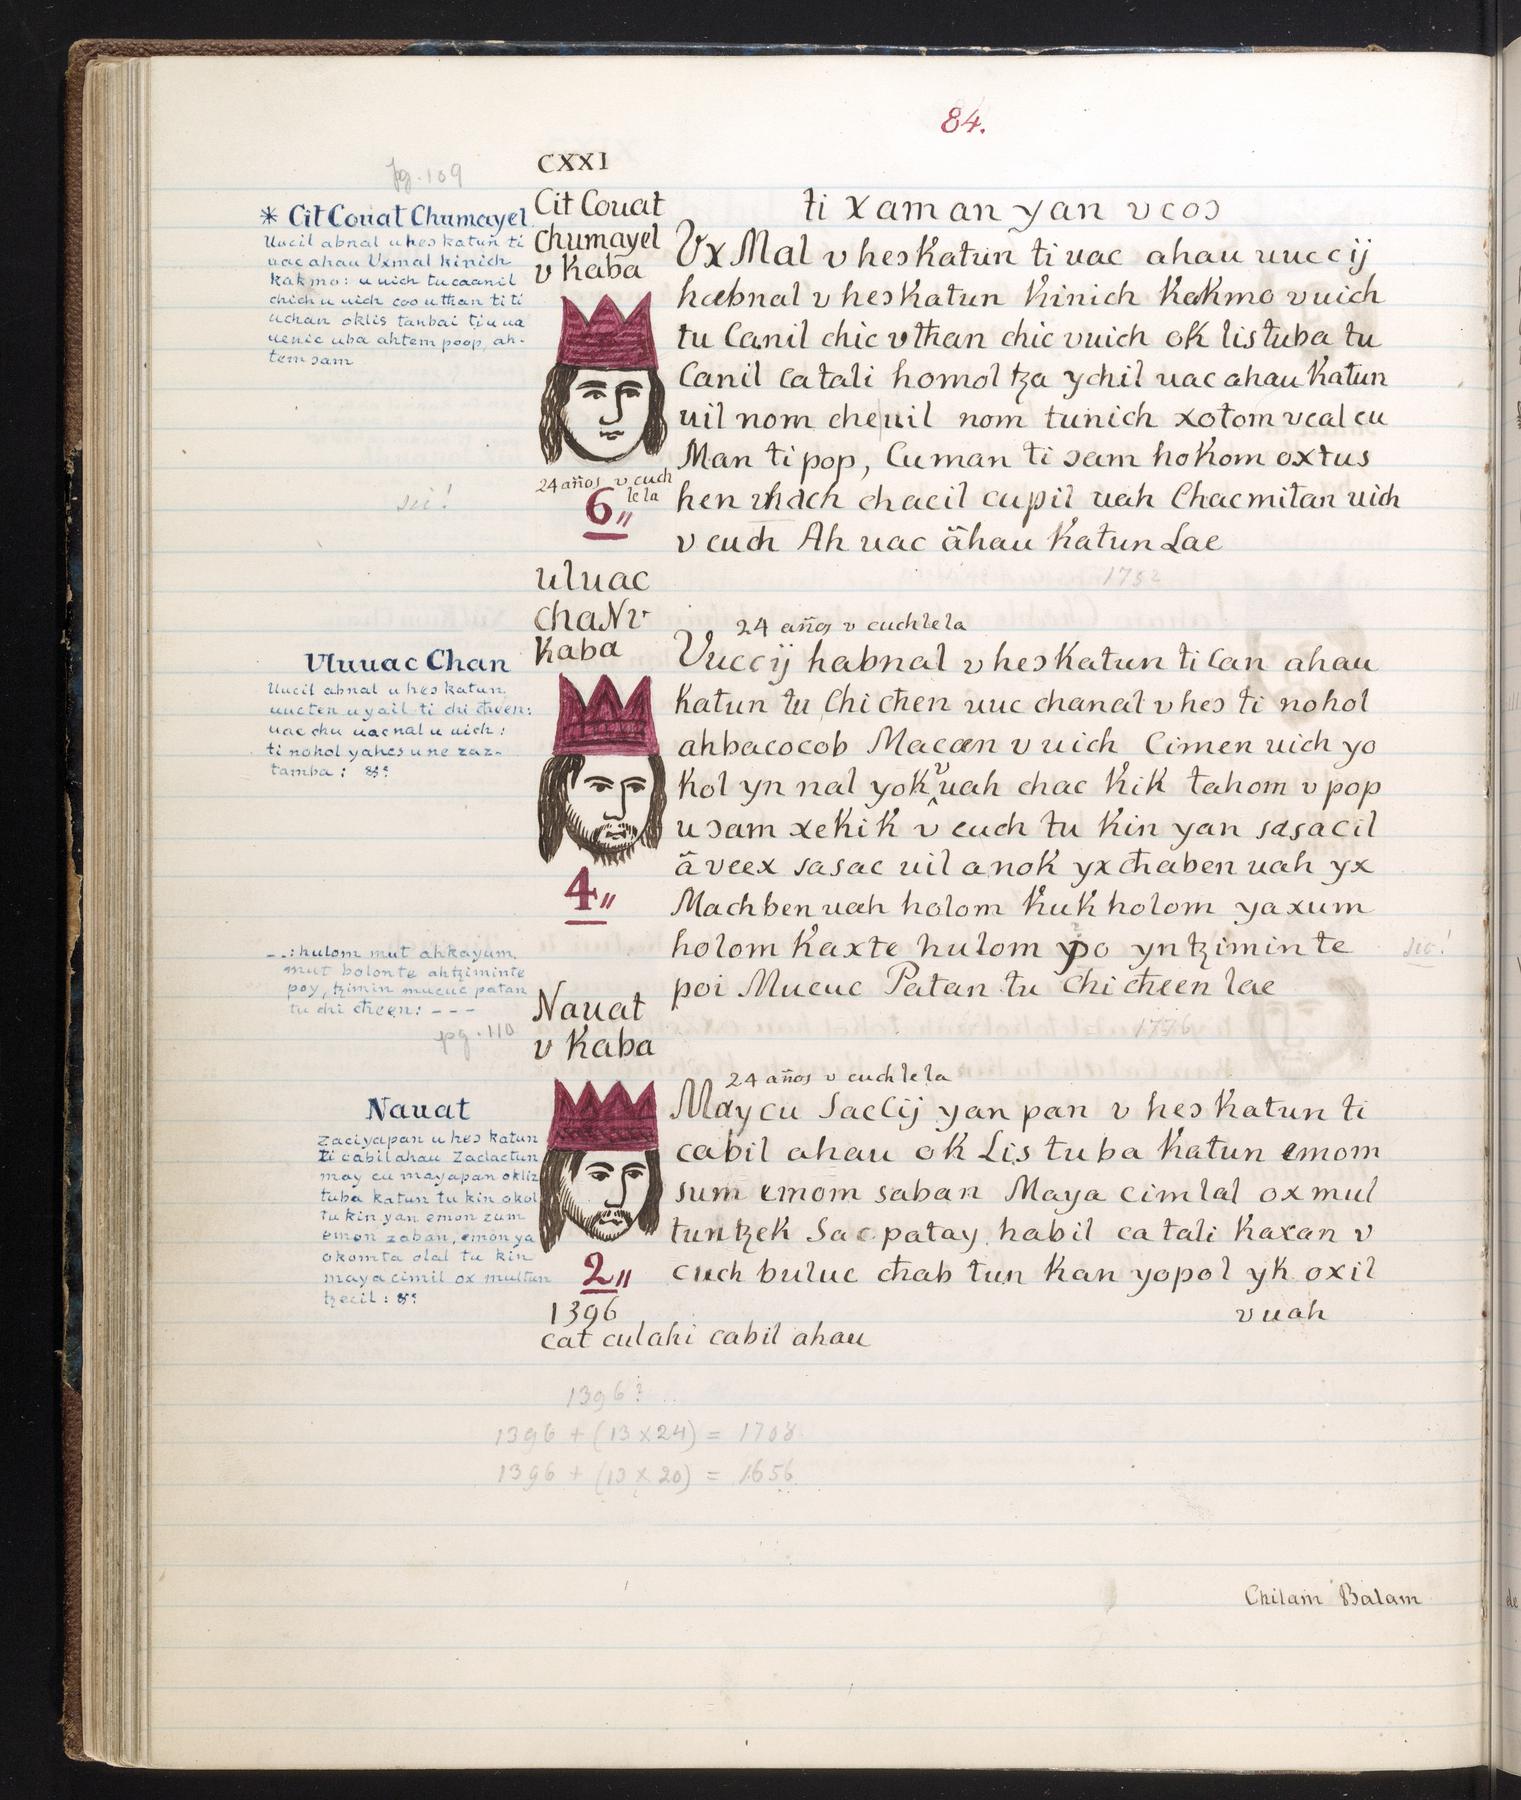 84.
CXXI
pg. 109
* Cit Couat Chumayel
Uucil abnal u heɔ katun ti
uac ahau Uxmal kinich
kakmo: u uich tu caanil
chich u uich coo u than ti ti
uchan oklis tanbai ti u ua
uenic uba ahtem poop, ah-
tem ɔam
Cit Couat
chumayel
v Kaba
24 años v cuch
lela
6"
sic!
ti xaman yan v coɔ
Vx Mal v heɔ Katun ti uac ahau uuccij
habnal v heɔ Katun Kinich Kakmo v uich
tu Canil chic v than chic vuich ok lis tuba tu
Canil ca tali homol tza ychil uac ahau Katun
uil nom che uil nom tunich xotom v cal cu
Man ti pop, Cuman ti ɔam hokom oxtus
hen chacil cupil uah Chacmitan uich
v cuch Ah uac ähau Katun Lae
1752
uluac
chaN v
Kaba
Uluuac Chan
Uucil abnal u heɔ katun
uucten u yail ti chi cheen:
uac chu uac nal u uich:
ti nohol yahes u ne zaz-
tamba:
4"
24 años v cuchlela
Vuccij habnal v heɔ Katun ti Can ahau
Katun tu Chi chen uuc chanal v heɔ ti nohol
ahbacocob Macan v uich Cimen uich yo
Kol yn nal yok v uah chac Kik tahom v pop
u ɔam xekik v cuch tu Kin yan sasacil
ä veex sasac uil a nok yx chaben uah yx
Machben uah holom Kuk holom yaxum
holom Kaxte hulom po yn tzimin te
sic!
poi Mucuc Patan tu chi cheen lae
1776
--: hulom mut ahkayum,
mut bolonte ahtziminte
poy, tzimin mucuc patan
tu chi cheen: - - -
pg. 110
Nauat
v Kaba
Nauat
Zaciyapan u heɔ katun
ti cabil ahau Zaclactun
may cu mayapan okliz
tuba katun tu kin okol
tu kin yan emon zum
emon zaban, emon ya
okomta olal tu kin
maya cimil ox multun
tzecil:
2"
1396
24 años v cuchlela
May cu Saccij yan pan v heɔ Katun ti
cabil ahau ok Lis tuba Katun emom
sum emom saban Maya cimlal ox mul
tuntzek Sac patay habil ca tali Kaxan v
cuch buluc chab tun Kan yopol yk oxil
v uah
cat culahi cabil ahau
1396?
1396 + (13 x 24) = 1708
1396 + (13 x 20) = 1656
Chilam Balam